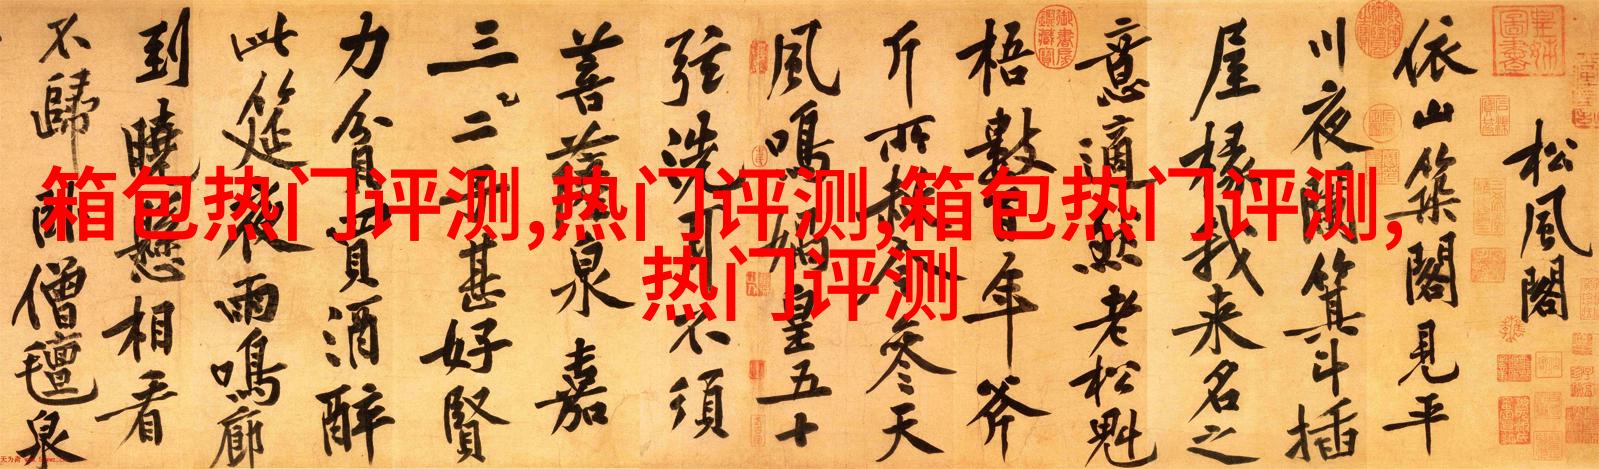 箱包热门评测,热门评测,箱包热门评测,
热门评测
松風閣
依山築閣見平
川夜闌箕斗插
屋椽我来名之
意適然老松魁
梧數百年斧
斤所赦今参天
風鳴媧皇五十
弦洗耳不須
菩薩泉嘉
三二子甚好賢
力貧買酒醉
此筵夜雨鳴廊
到曉懸相看
不歸卧僧氊泉